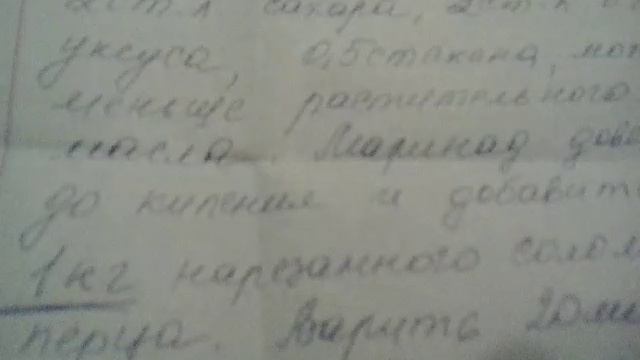 2 ст. л сахара, 2 ст. л
уксуса, 0,5 стакана, мо
меньше растительного
масла. Маринад дов
до кипения и добавит
1 кг нарезанного солом
перца. Варить 20 ми